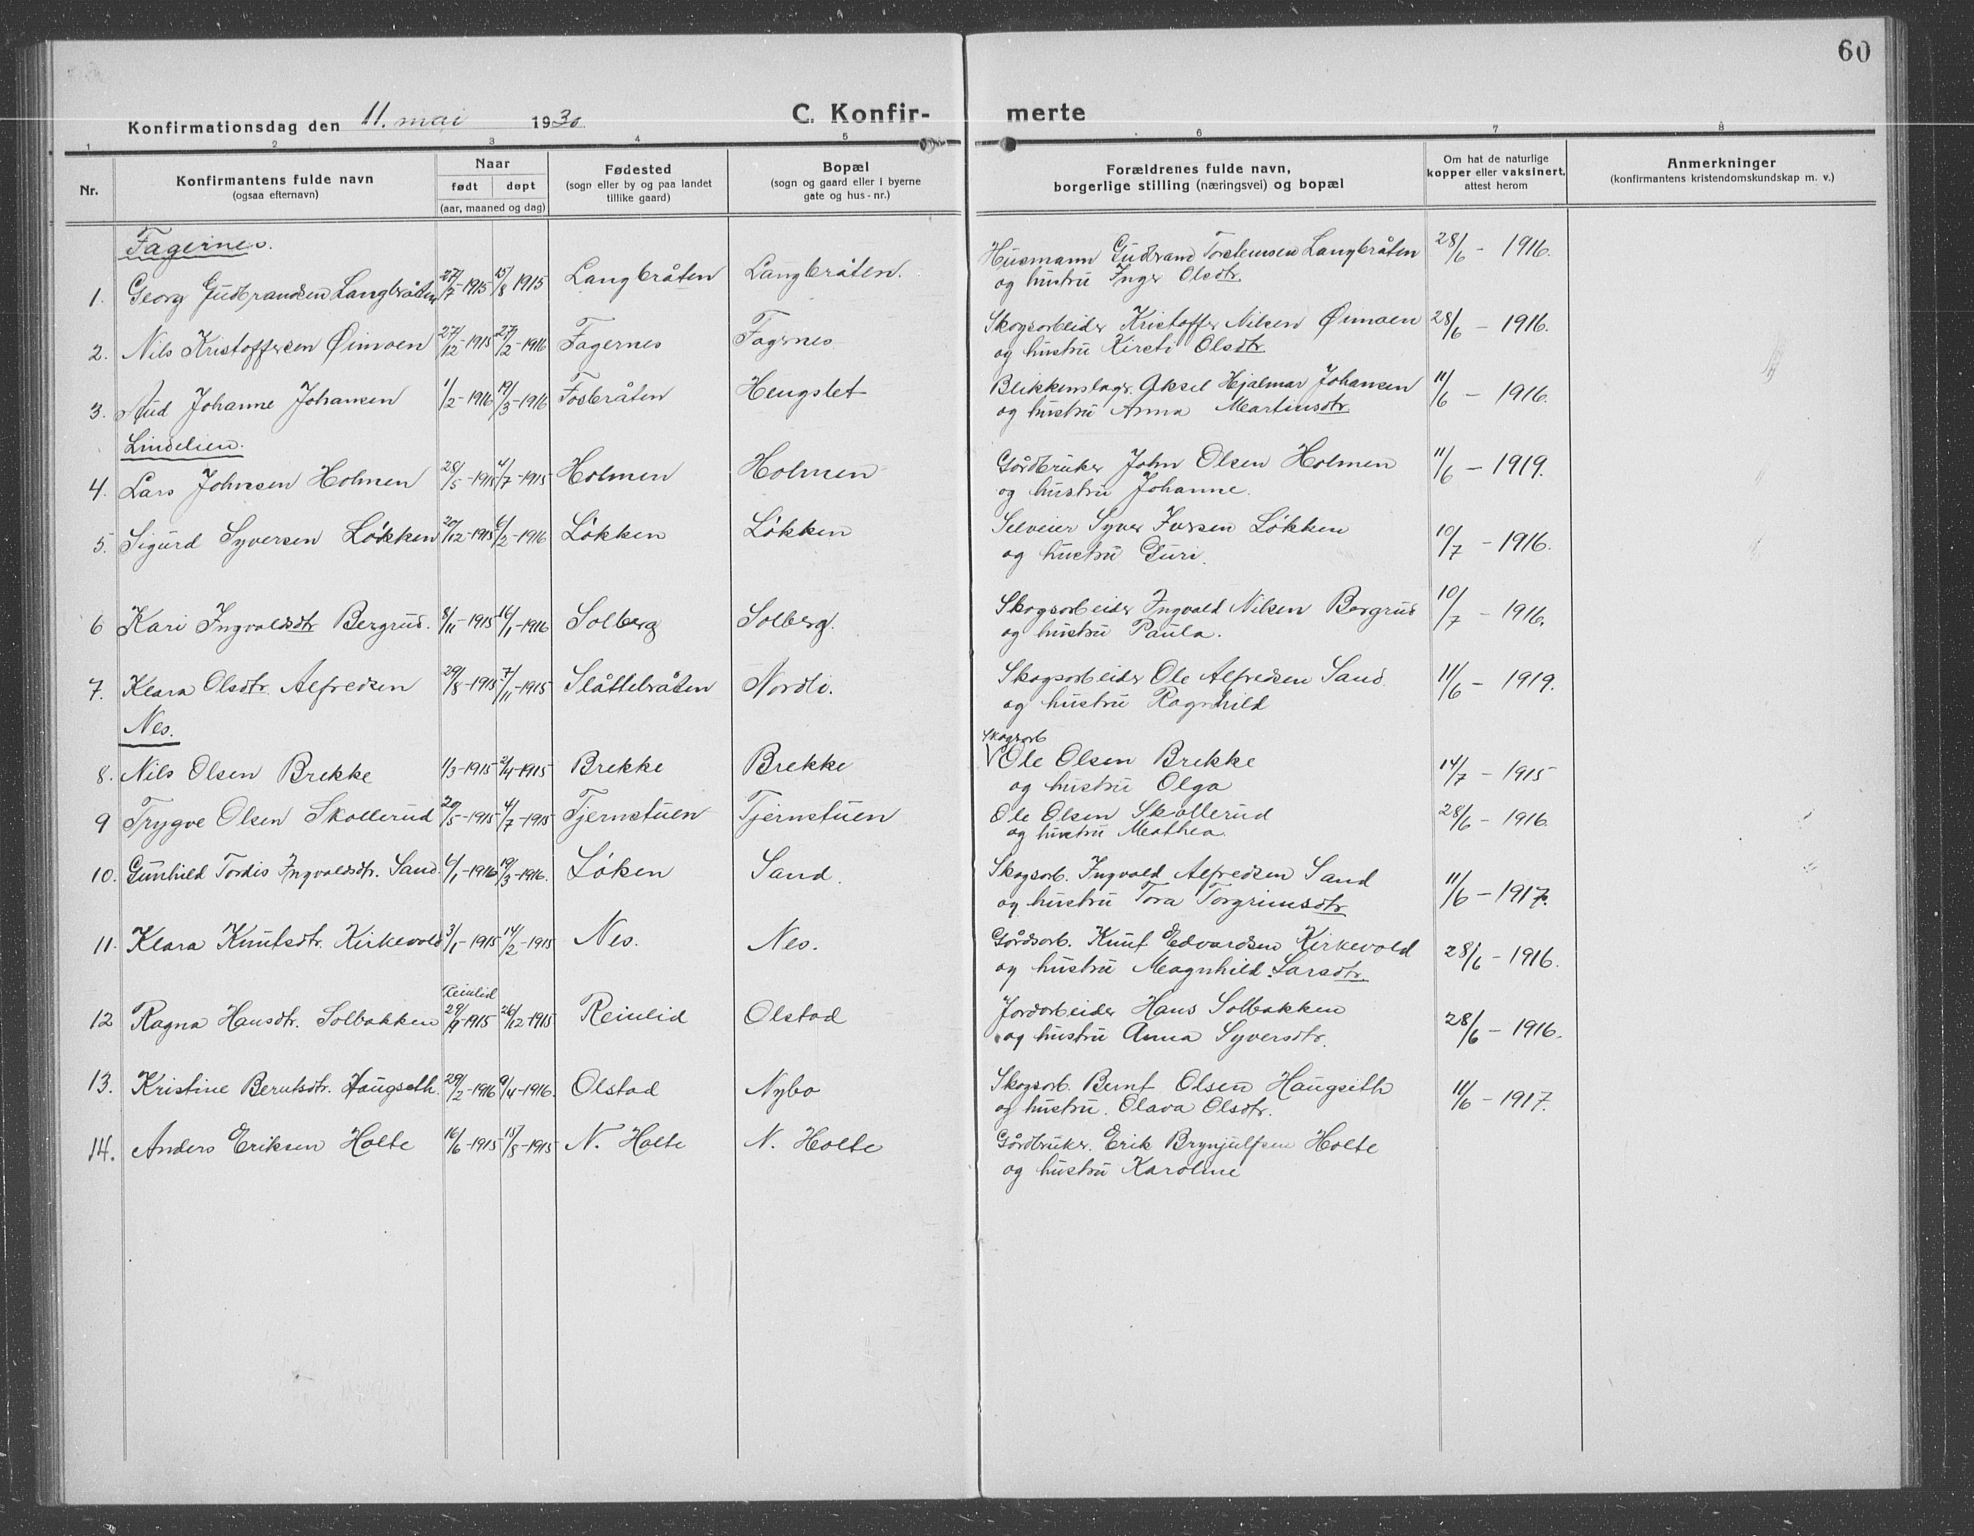 60
Konfirmationsdag den 11. mai 1930 C. Konfir- merte
1 2 3 4 5 6 7 8
Nr. Konfirmantens fulde navn (ogsaa efternavn) Naar født døpt (aar, maaned og dag) Fødested (sogn eller by og paa landet tillike gaard) Bopæl (sogn og gaard eller i byerne gate og hus-nr.) Forældrenes fulde navn, borgerlige stilling (næringsvei) og bopæl Om hat de naturlige kopper eller vaksinert, attest herom Anmerkninger (konfirmantens kristendomskundskap m. v.)
Fagernes.
1. Georg Gudbrandsen Langbråten 27/7-1915 15/8 1915 Langbråten Langbråten. Husmann Gudbrand Torstensen Langbråten 28/6 - 1916.
og hustru Inger Olsdtr.
2. Nils Kristoffersen Øimoen 27/12-1915 27/2-1916 Fagernes Fagernes Skogsarbeider Kristoffer Nilsen Øimoen 28/6 - 1916.
og hustru Kirsti Olsdtr
3. Aud Johanne Johansen 1/2-1916 19/3-1916 Fosbråten Hengslet Blikkenslager Aksel Hjalmar Johansen 11/6 - 1916.
og hustru Anna Martinsdtr.
Lindelien.
4. Lars Johnsen Holmen 28/5-1915 4/7-1915 Holmen Holmen Gårdbruker John Olsen Holmen 11/6 - 1919.
og hustru Johanne.
5. Sigurd Syversen Løkken 20/12-1915 6/2-1916 Løkken Løkken Selveier Syver Iversen Løkken 10/7 - 1916.
og hustru Guri.
6 Kari Ingvaldsdtr Bergrud. 8/11-1915 16/1-1916 Solberg Solberg. Skogsarbeider Ingvald Nilsen Bergrud 10/7 - 1916.
og hustru Paula.
7. Klara Olsdtr. Alfredsen 29/8-1915 7/11-1915 Slåttebråten Nordli. Skogsarbeider Ole Alfredsen Sand 11/6 - 1919.
og hustru Ragnhild
Nes.
Skogsarb
8. Nils Olsen Brekke 1/3-1915 2/4-1915 Brekke Brekke Ole Olsen Brekke 14/7 - 1915
og hustru Olga
9 Trygve Olsen Skollerud 20/5-1915 4/7-1915 Tjernstuen Tjernstuen Ole Olsen Skollerud 28/6 - 1916.
og hustru Mathea.
10. Gunhild Tordis Ingvaldsdtr. Sand. 4/1-1916 19/3-1916. Løken Sand. Skogsarb. Ingvald Alfredsen Sand 11/6 - 1917.
og hustru Tora Torgrimsdtr
11. Klara Knutsdtr. Kirkevold 3/1-1915 14/2-1915 Nes. Nes. Gårdsarb. Knut Edvardsen Kirkevold 28/6 - 1916.
og hustru Magnhild Larsdtr.
Reinlid
12 Ragna Hansdtr. Solbakken 29/9-1915 26/12-1915 Reinlid Olstad Jordarbeider Hans Solbakken 28/6 - 1916.
og hustru Anna Syversdtr.
13. Kristine Berntsdtr. Haugseth. 29/2-1916 9/4-1916. Olstad Nybo Skogsarb. Bernt Olsen Haugseth 11/6 - 1917.
og hustru. Olava Olsdtr.
14. Anders Eriksen Holte 16/6-1915 15/8-1915 N. Holte N. Holte Gårdbruker. Erik Brynjulfsen Holte
og hustru Karoline